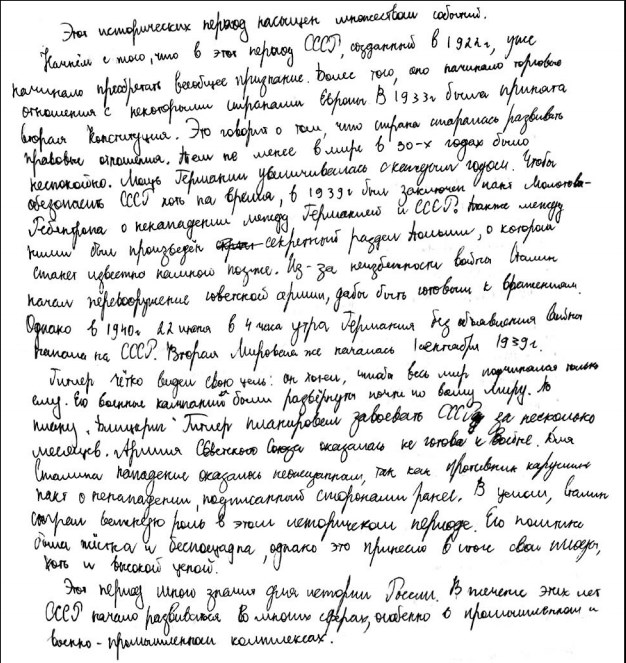 Этот исторических период насыщен множеством событий.
Начнём с того, что в этот период СССР, созданный в 1922г, уже
начинало преобретать всеобщее признание. Более того, оно начинало торговые
отношения с некоторыми странами Европы В 1933г была принята
вторая Конституция. Это говорил о том, что страна старалась развивать
правовые отношения. Тем не менее в мире в 30-х годах было
неспокойно. Мощь Германии увеличивалась с каждым годом. Чтобы
обезопасить СССР хоть на время, в 1939г был заключен пакт Молотова-
Риббентропа о ненападении между Германией и СССР. Также между
ними был произведён секретный раздел Польши, о котором
станет известно намного позже. Из-за неизбежности войны Сталин
начал перевооружение советской армии, дабы быть готовым к вражениям.
Однако в 1940г 22 июня в 4 часа утра Германия без объявления войны
напала на СССР. Вторая Мировая же началась 1 сентября 1939г.
Гитлер чётко видел свою цель: он хотел, чтобы весь мир подчинялся только
ему. Его военные кампании были развёрнуты почти по всему миру. По
плану "Блицкриг" Гитлер планировал завоевать СССР за несколько
месяцев. Армия Советского Союза оказалась не готова к войне. Для
Сталина нападение оказалось неожиданным, так как противник нарушил
пакт о ненападении, подписанный сторонами ранее. В целом, Сталин
сыграл важную роль в этом историческом периоде. Его политика
была жёстка и беспощадна, однако это принесло в итоге свои плоды,
хоть и высокой ценой.
Этот период много значил для истории России. В течение этих лет
СССР начало развиваться во многих сферах, особенно в промышленном и
военно-промышленном комплексах.